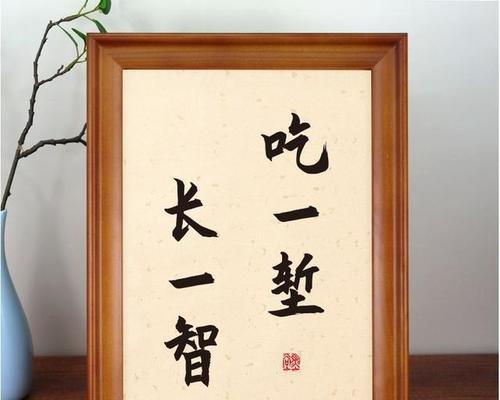 吃一堑
长一智